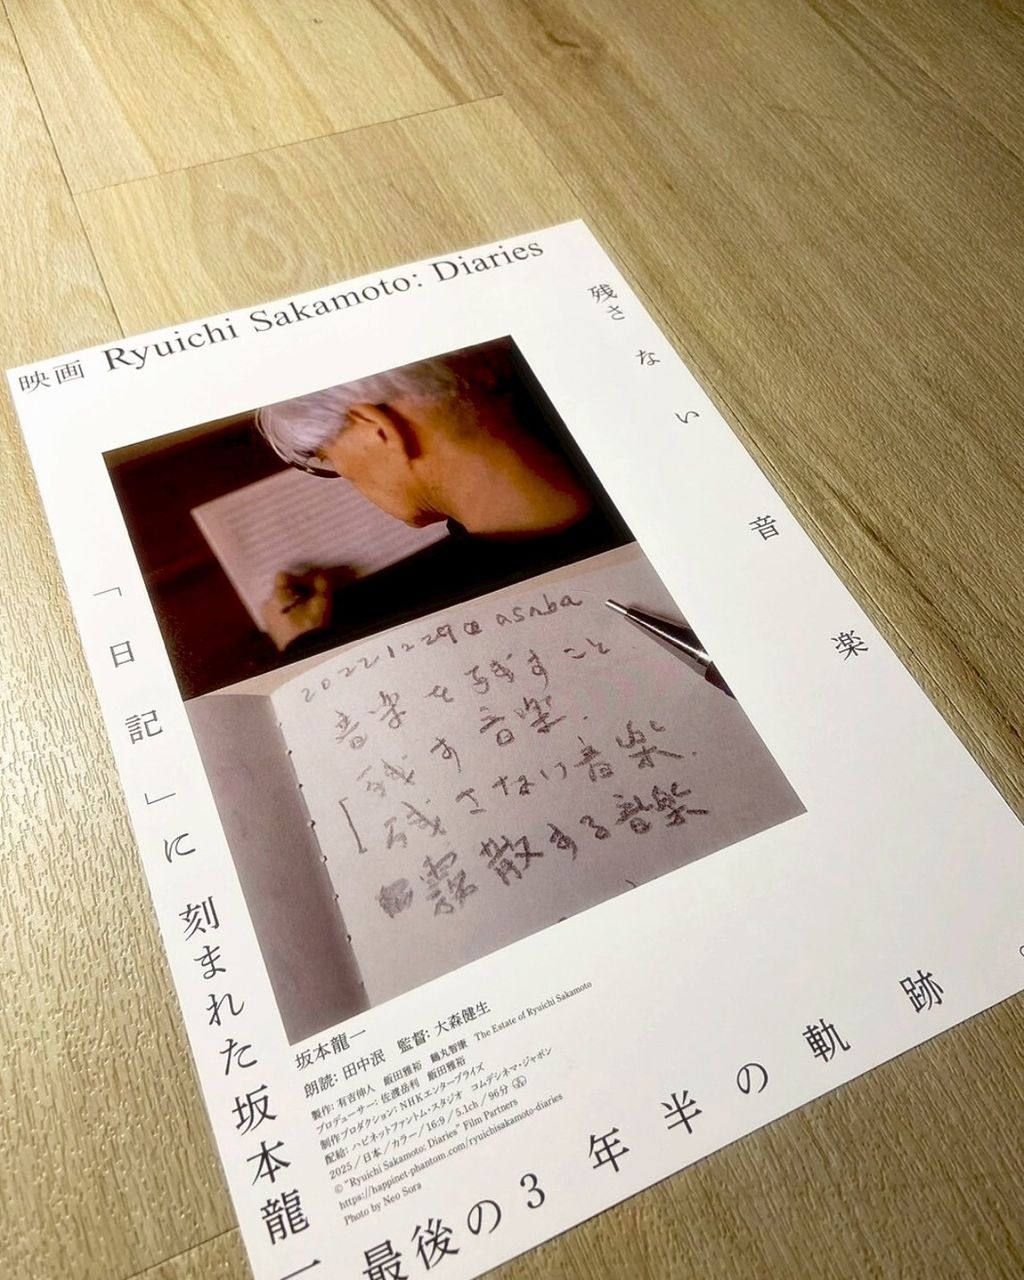 映画 Ryuichi Sakamoto: Diaries
残さない音楽
20221229@ asaba
音楽を残すこと.
残す音楽.
残さない音楽.
散する音楽
「日記」に刻まれた坂本龍一
最後の3年半の軌跡。
坂本龍一
朗読: 田中泯　監督: 大森健生
製作: 有吉伸人　飯田雅裕　鶴丸智康　The Estate of Ryuichi Sakamoto
プロデューサー: 佐渡岳利　飯田雅裕
制作プロダクション: NHKエンタープライズ
配給: ハピネットファントム・スタジオ　コムデシネマ・ジャポン
2025／日本／カラー／16:9／5.1ch／96分
© "Ryuichi Sakamoto: Diaries" Film Partners
https://happinet-phantom.com/ryuichisakamoto-diaries
Photo by Neo Sora